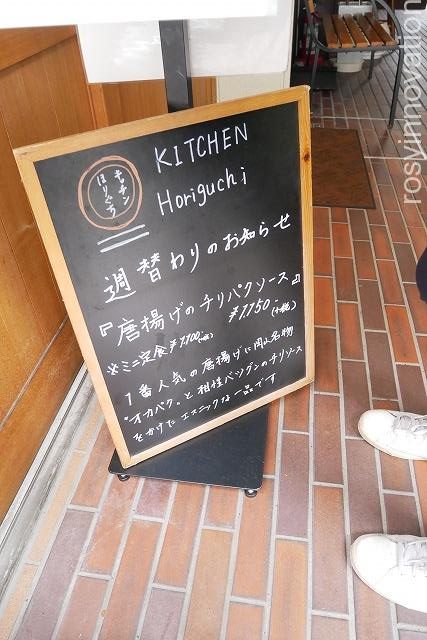 キッチン
ほりぐち
KITCHEN
Horiguchi
週替わりのお知らせ
『唐揚げのチリパクソース』
¥1150(+税)
※ミニ定食¥1,100(+税)
1番人気の唐揚げに岡山名物
"オカパク"と相性バツグンのチリソース
をかけたエスニックな一品です
rosyinnovation